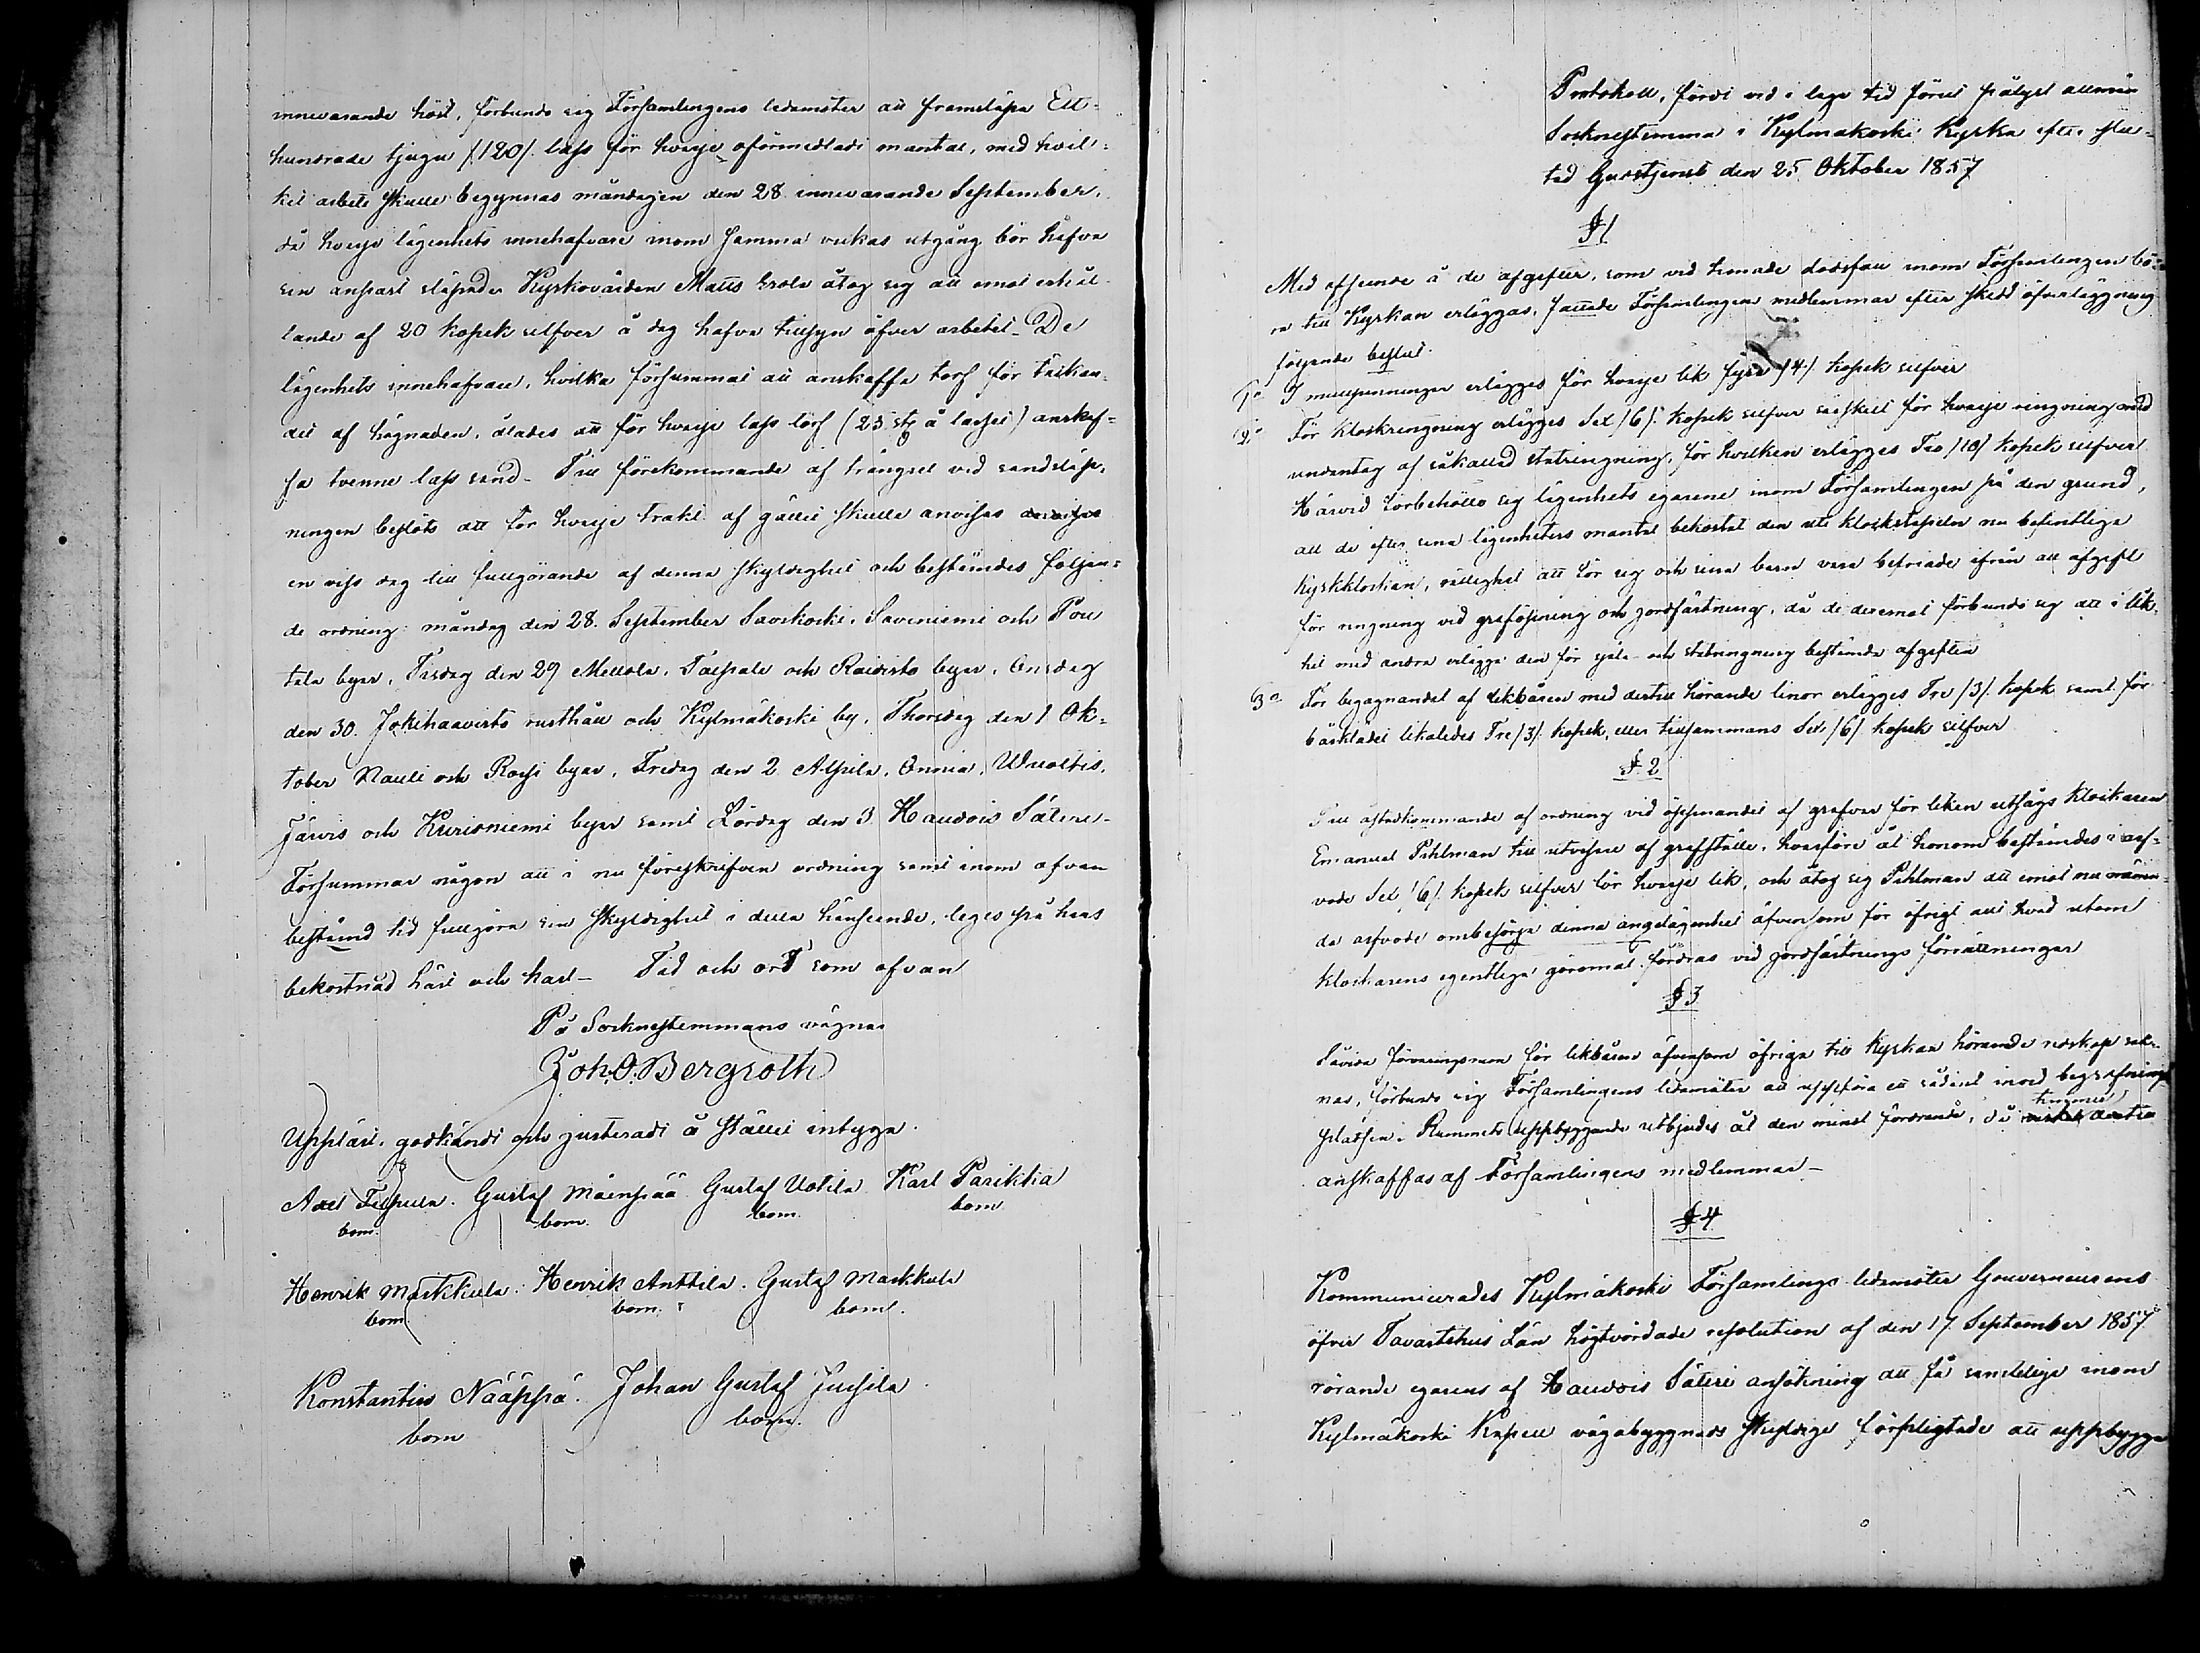 innevarande höst, förbundo sig Församlingens ledamöter att framsläpa Ett-
hundrade tjugu /:120/: lass för hvarje oförmedladt mantal, med hvil-
ket arbete skulle begynnas måndagen den 28 innevarande September,
då hvarje lägenhets innehafvare inom samma veckas utgång bör hafva
sin anpart släpad. Kyrkovärden Matts Erola åtog sig att emot erhål-
lande af 20 kopek silfver å dag hafva tillsyn öfver arbetet_ De
lägenhets innehafvare, hvilka försummat att anskaffa torf för täckan-
det af hägnaden, ålades att för hvarje lass torf (25 st å lasset) anskaf-
fa tvenne lass sand_ Till förekommande af trängsel vid sandsläp-
ningen beslöts att för hvarje trakt af gället skulle anvisas
en viss dag till fullgörande af denna skyldighet och bestämdes följan-
de ordning: måndag den 28. September Savikoski, Saviniemi och Pou
tala byar, Tisdag den 29 Mellola, Taipale och Raivisto byar, Onsdag
den 30. Jokihaavisto rusthåll och Kylmäkoski by, Thorsdag den 1 Ok-
tober Nauli och Rossi byar, Fredag den 2 Arpela, Onnia, Wuoltis,
Järvis och Kurisniemi byar samt Lördag den 3 Haudois Säteri_
Försummar någon att i nu föreskrifven ordning samt inom ofvan
bestämd tid fullgöra sin skyldighet i detta hänseende, leges på hans
bekostnad häst och karl_ Tid och ort som ofvan
På Socknestemmans vägnar
Joh. O. Bergroth
Uppläst, godkändt och justeradt å stället intyga.
Axel Gustaf Mäenpää Gustaf Uotila Karl Parikkia
bom. bom. bom. bom
Henrik Markkula. Henrik Anttila. Gustaf Markkula
bom bom. bom.
Konstantin Nääppä. Johan Gustaf Jussila
bom bom.
Protokoll, fördt vid i laga tid förut pålyst allmän
Socknestemma i Kylmäkoski Kyrka efter slu-
tad Gudstjenst den 25 Oktober 1857
§ 1
Med afseende å de afgifter, som vid timade dödsfall inom Församlingen bö-
ra till Kyrkan erläggas, fattade Församlingens medlemmar efter skedd öfverläggning
följande beslut.
1o I mullpenningar erlägges för hvarje lik fyra /4/ kopek silfver
2o För klockringning erlägges Sex /6/ kopek silfver särskilt för hvarje ringning med
undantag af såkallad statringning, för hvilken erlägges Tio /10/ kopek silfver
Härvid förbehöllo sig lägenhets egarene inom Församlingen på den grund,
att de efter sina lägenheters mantal bekostat den uti klockstapeln nu befintliga
kyrkklockan, rättighet att för sig och sina barn vara befriade ifrån all afgift
för ringning vid graföpning och jordfästning, då de deremot förbundo sig att i lik-
het med andra erlägga den för själa- och statringning bestämda afgiften
3o För begagnandet af likbåren med dertill hörande linor erlägges Tre /3/ kopek samt för
bårklädet likaledes Tre /3/ kopek, eller tillsammans Sex /6/ kopek silfver
§. 2
Till åstadkommande af ordning vid öppnandet af grafvar för liken utsågs Klockaren
Emanuel Pihlman till utvisare af grafställe, hvarföre åt honom bestämdes i arf-
vode Sex /6/ kopek silfver för hvarje lik, och åtog sig Pihlman att emot nu nämn-
da arfvode ombesörja denna angelägenhet äfvensom för öfrigt allt hvad utom
klockarens egentliga göromål fordras vid jordfästnings förrättningar
§ 3
Såvida förvaringsrum för likbåren äfvensom öfriga till Kyrkan hörande redskap sak-
nas, förbundo sig Församlingens ledamöter att uppföra ett sådant invid begrafnings
platsen. Rummets uppbyggande utbjudes åt den minst fordrande, då timmer
anskaffas af Församlingens medlemmar_
§ 4
Kommunicerades Kylmäkoski Församlings ledamöter Gouverneurens
öfver Tavastehus Län högtvördade resolution af den 17 September 1857
rörande egarens af Haudois Säteri ansökning att få samtelige inom
Kylmäkoski Kapell vägabyggnads skyldige förpligtade att uppbygga